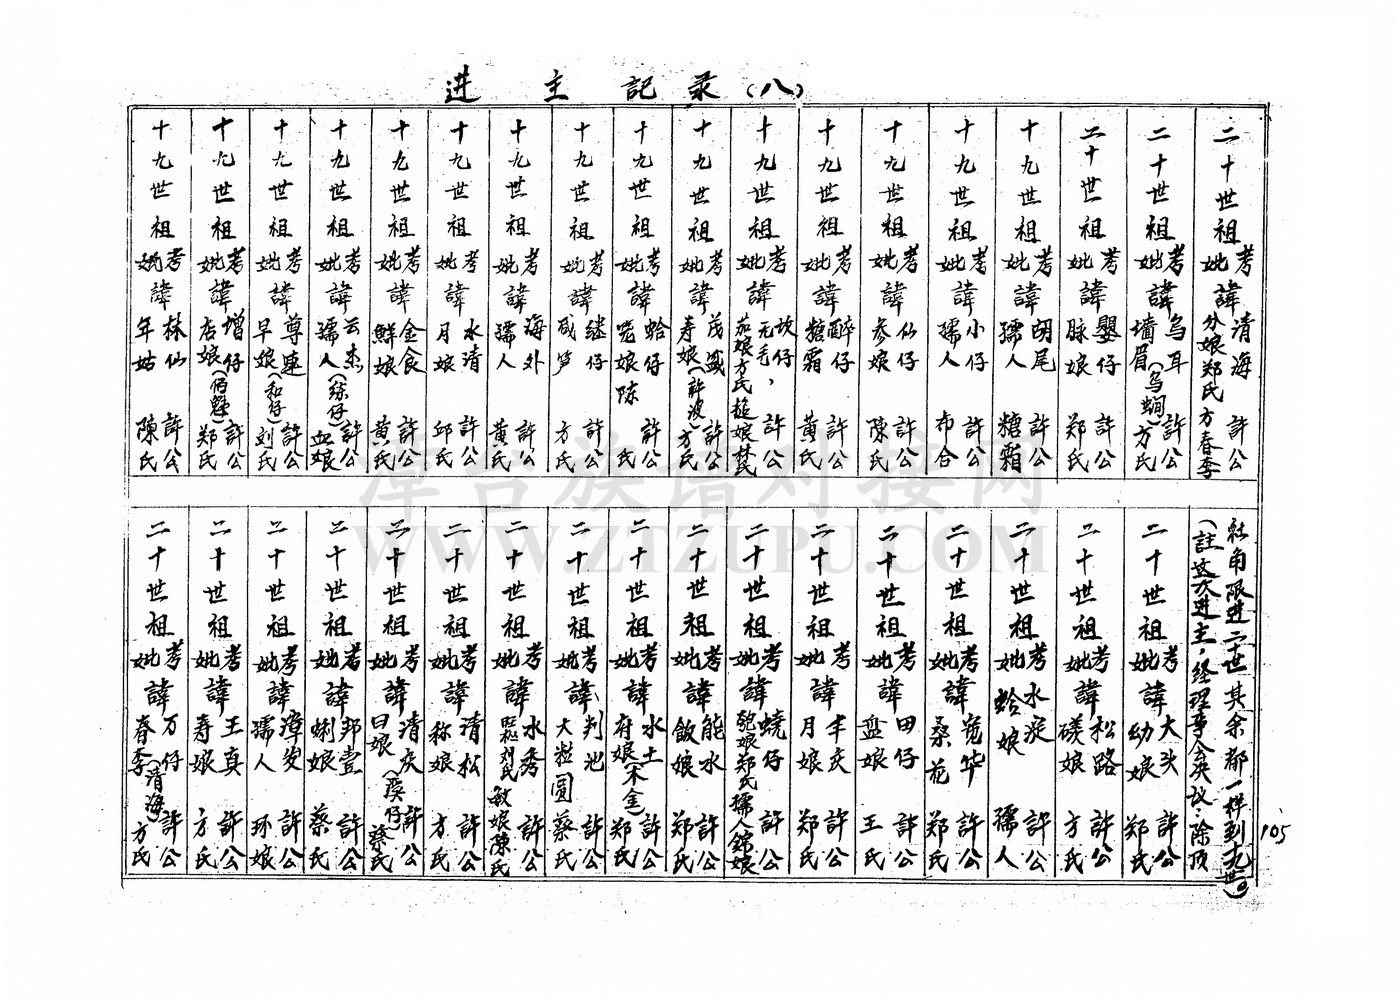 进主記录(八)
二十世祖考妣諱清海許公 分娘郑氏方春李
二十世祖考妣諱乌耳許公 墙眉(乌蜩)方氏
二十世祖考妣諱婴仔許公 脉娘郑氏
十九世祖考妣諱闭尾許公 孺人糖霜
十九世祖考妣諱小仔許公 孺人布合
十九世祖考妣諱仙仔許公 参娘陳氏
十九世祖考妣諱醉仔許公 糖霜黄氏
十九世祖考妣諱坎仔許公 无毛,茄娘方氏 娘林氏
十九世祖考妣諱茂盛許公 寿娘(許波)方氏
十九世祖考妣諱蛤仔許公 娘陈氏
十九世祖考妣諱继仔許公 咸笋方氏
十九世祖考妣諱海外許公 孺人黄氏
十九世祖考妣諱水清許公 月娘邱氏
十九世祖考妣諱金食許公 鮮娘黄氏
十九世祖考妣諱云杰許公 孺人(綜仔)血娘
十九世祖考妣諱尊速許公 早娘(和仔)刘氏
十九世祖考妣諱增仔許公 店娘(佰魁)郑氏
十九世祖考妣諱林仙許公 年姑陳氏
社角限进二十世其余都一样到十九世)。
(註这次进主,经理事会决议:除頂
二十世祖考妣諱大头許公 幼娘郑氏
二十世祖考妣諱松路許公 磺娘方氏
二十世祖考妣諱水淀許公 蛤娘孺人
二十世祖考妣諱宽华許公 桑花郑氏
二十世祖考妣諱田仔許公 盆娘王氏
二十世祖考妣諱丰庆許公 月娘郑氏
二十世祖考妣諱蟯仔許公 鲍娘郑氏孺人錦娘
二十世祖考妣諱能水許公 飯娘郑氏
二十世祖考妣諱水土許公 府娘(木金)郑氏
二十世祖考妣諱判池許公 大粒圆蔡氏
二十世祖考妣諱水秀許公 旺松刘氏敏娘陳氏
二十世祖考妣諱清松許公 称娘方氏
二十世祖考妣諱清庆許公 日娘(溪仔)蔡氏
二十世祖考妣諱邦壹許公 蜊娘蔡氏
二十世祖考妣諱璋燮許公 孺人环娘
二十世祖考妣諱王真許公 寿娘方氏
二十世祖考妣諱万仔許公 春李(清海)方氏
105
漳台族谱对接网
WWW.ZTZUPU.COM